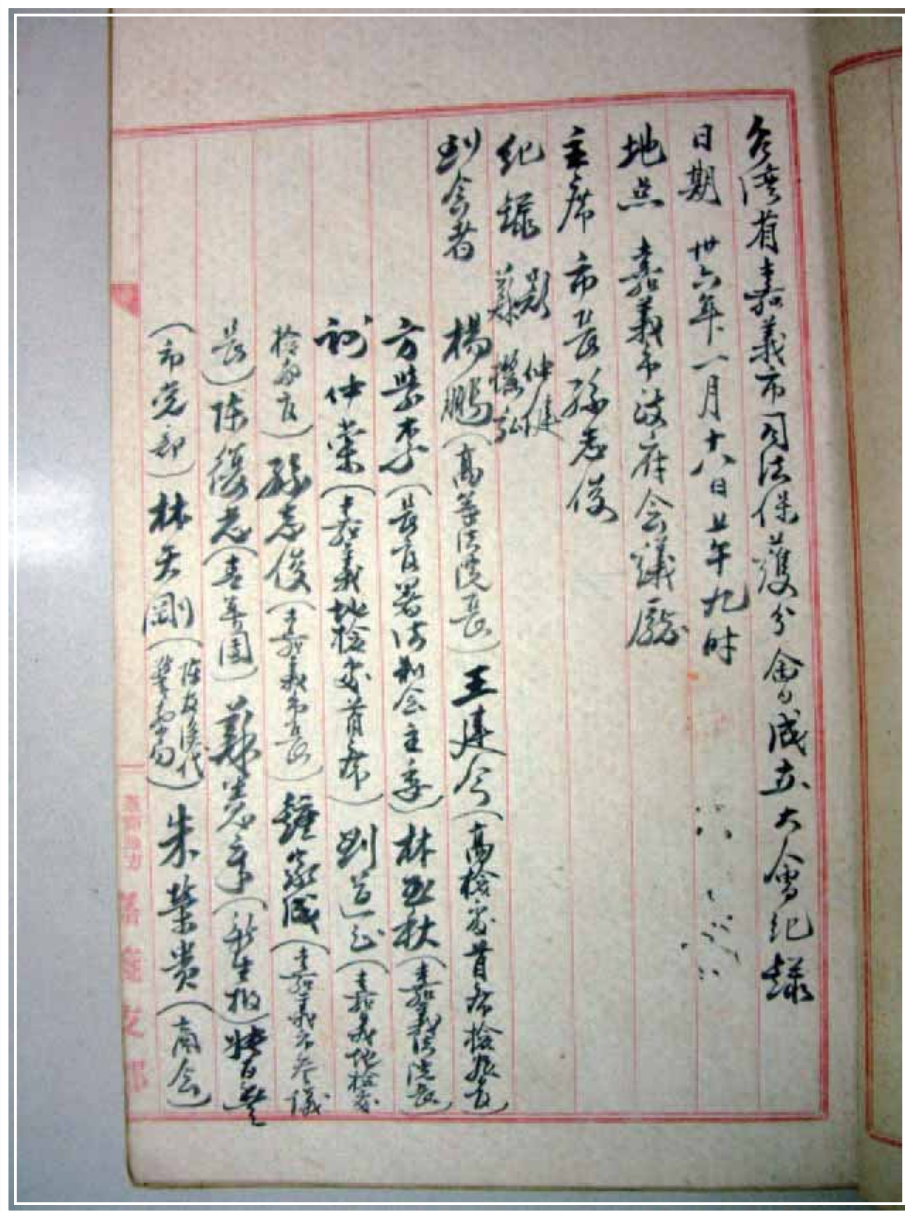 台湾省嘉義市司法保護分會成立大會紀錄
日期 卅六年一月十八日上午九时
地点 嘉義市政府会議廳
主席 市長孫志俊
紀錄 仲健
到会者 楊鵬(高等法院長)王建今(高檢処首席檢察長)
方學李(長官署法制会主委)林玉秋(嘉義法院長)
仲棠(嘉義地檢処首席)劉道(嘉義地檢処
檢察官)孫志俊(嘉義市長)鍾家成(嘉義市参議
長)陈復志(青年團)蘇憲章(新生报)
(市党部)林天剛(警察局)朱榮贵(商会)
支部